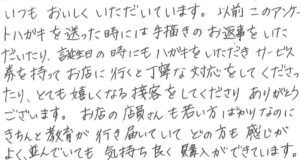 いつも おいしく いただいています。以前 このアンケ
トハガキを送った時には手描きの お返事を いた
だいたり、誕生日の時にもハガキをいただき サービス
券を持ってお店に行くと丁寧な対応をしてくださっ
たり、とても嬉しくなる接客をしてくださり ありがとう
ございます。お店の店員さんも若い方ばかりなのに
きちんと教育が行き届いていて どの方も 感じが
よく、並んでいても 気持ち良く 購入ができています。